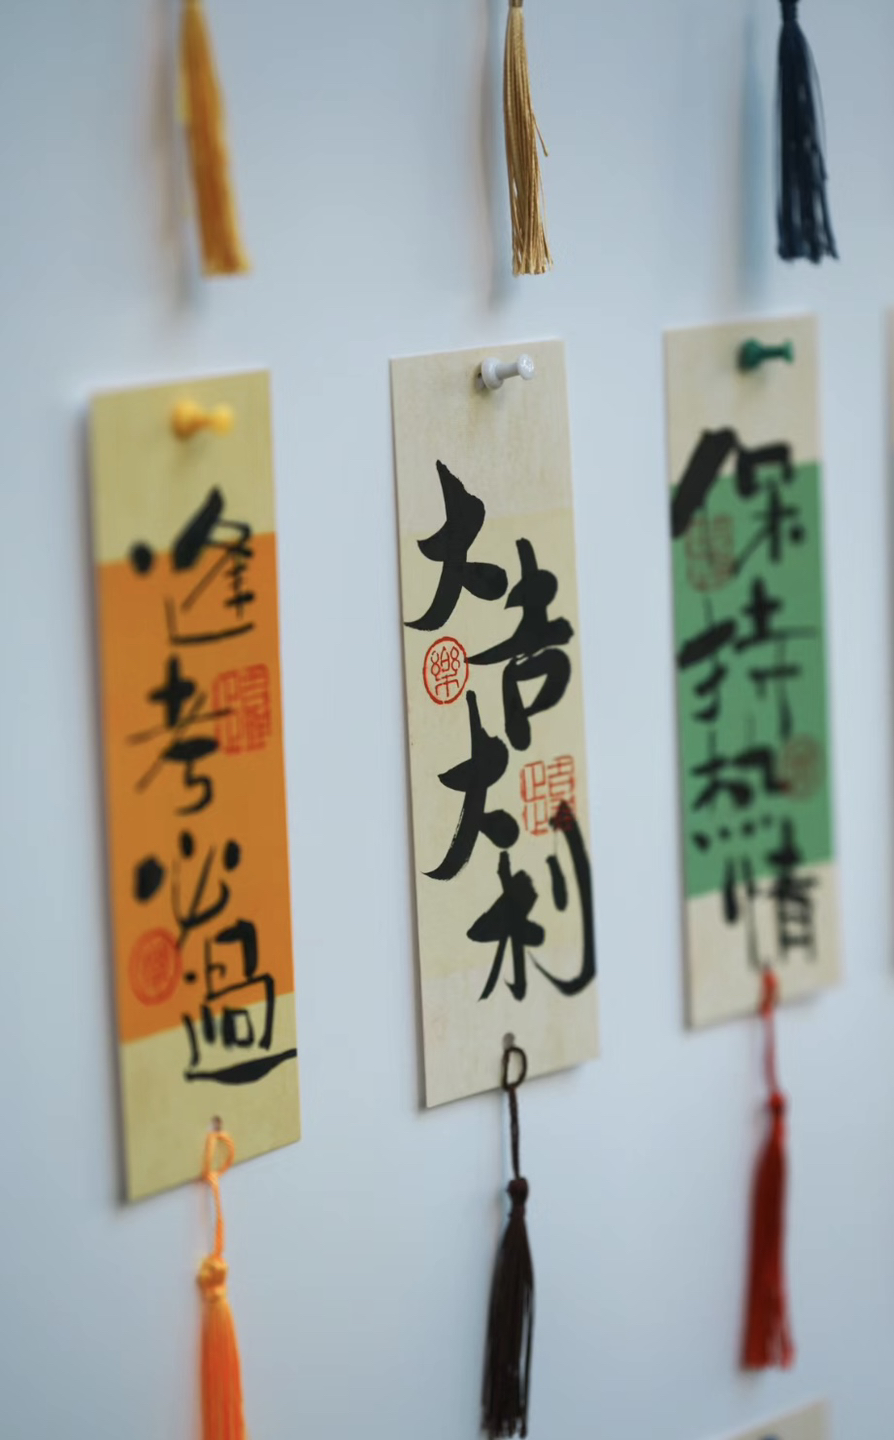 逢考必過
大吉大利
樂
保持热情